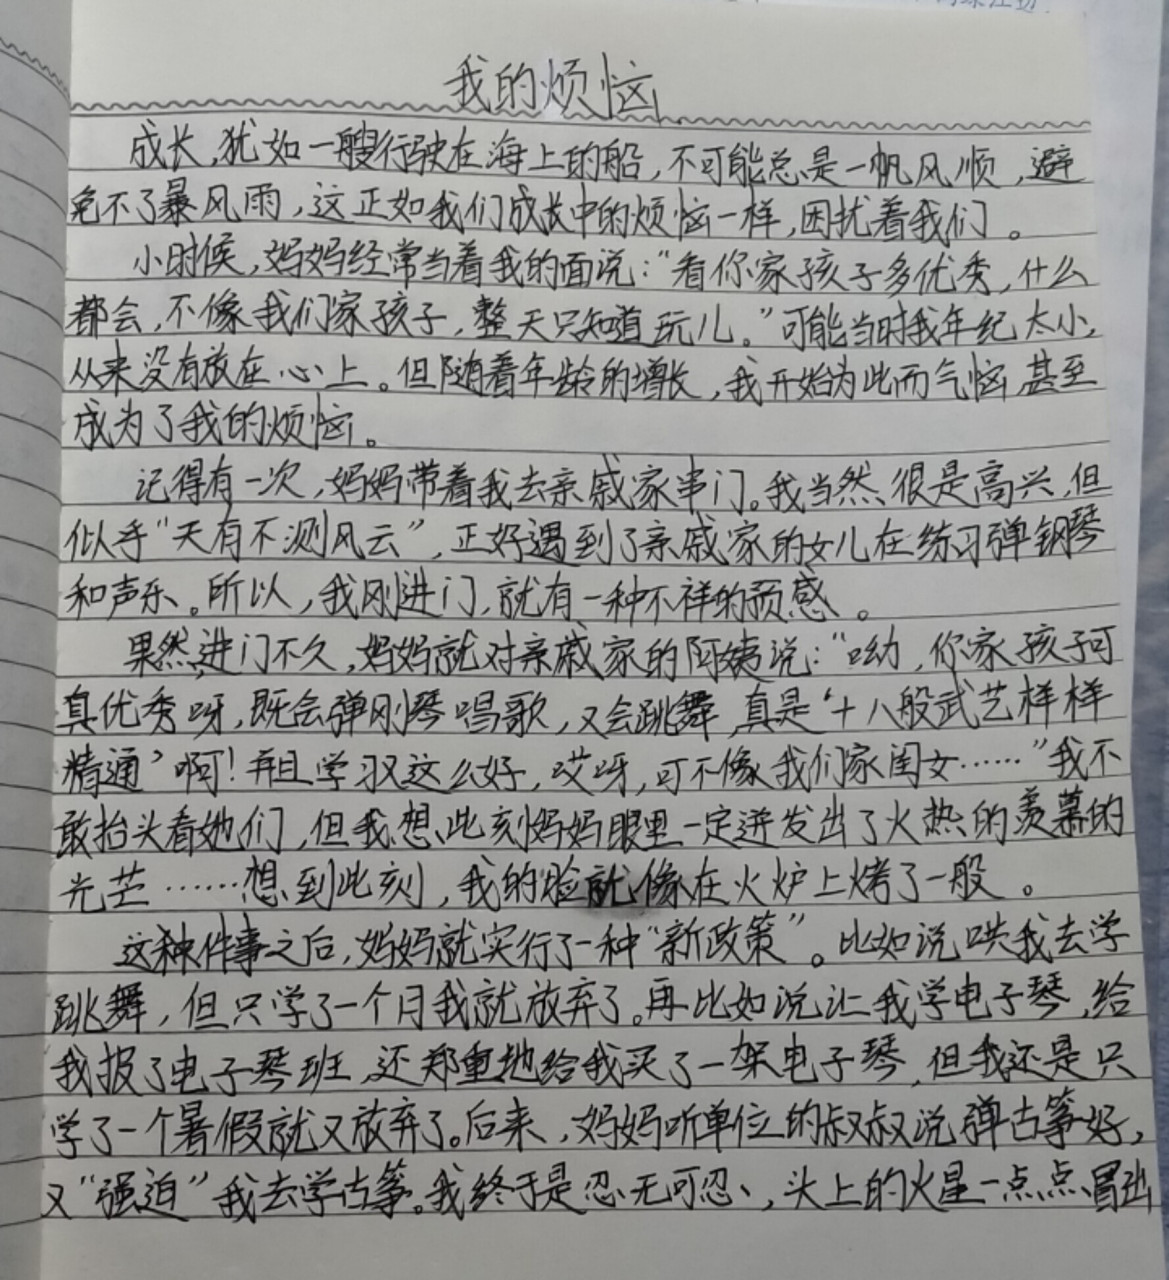 我的烦恼
成长,犹如一艘行驶在海上的船,不可能总是一帆风顺,避
免不了暴风雨,这正如我们成长中的烦恼一样,困扰着我们。
小时候,妈妈经常当着我的面说:“看你家孩子多优秀,什么
都会,不像我们家孩子,整天只知道玩儿。”可能当时我年纪太小,
从来没有放在心上。但随着年龄的增长,我开始为此而气恼,甚至
成为了我的烦恼。
记得有一次,妈妈带着我去亲戚家串门。我当然很是高兴,但
似乎“天有不测风云”,正好遇到了亲戚家的女儿在练习弹钢琴
和声乐。所以,我刚进门,就有一种不祥的预感。
果然,进门不久,妈妈就对亲戚家的阿姨说:“呦,你家孩子可
真优秀呀,既会弹刚琴唱歌,又会跳舞,真是‘十八般武艺样样
精通’啊!再且学习又这么好,哎呀,可不像我们家闺女……”我不
敢抬头看她们,但我想,此刻妈妈眼里一定迸发出了火热的羡慕的
光芒……想到此刻,我的脸就像在火炉上烤了一般。
这种件事之后,妈妈就实行了一种“新政策”。比如说哄我去学
跳舞,但只学了一个月我就放弃了。再比如说让我学电子琴,给
我报了电子琴班,还郑重地给我买了一架电子琴,但我还是只
学了一个暑假就又放弃了。后来,妈妈听单位的叔叔说弹古筝好,
又“强迫”我去学古筝。我终于是忍无可忍,头上的火星一点点冒出